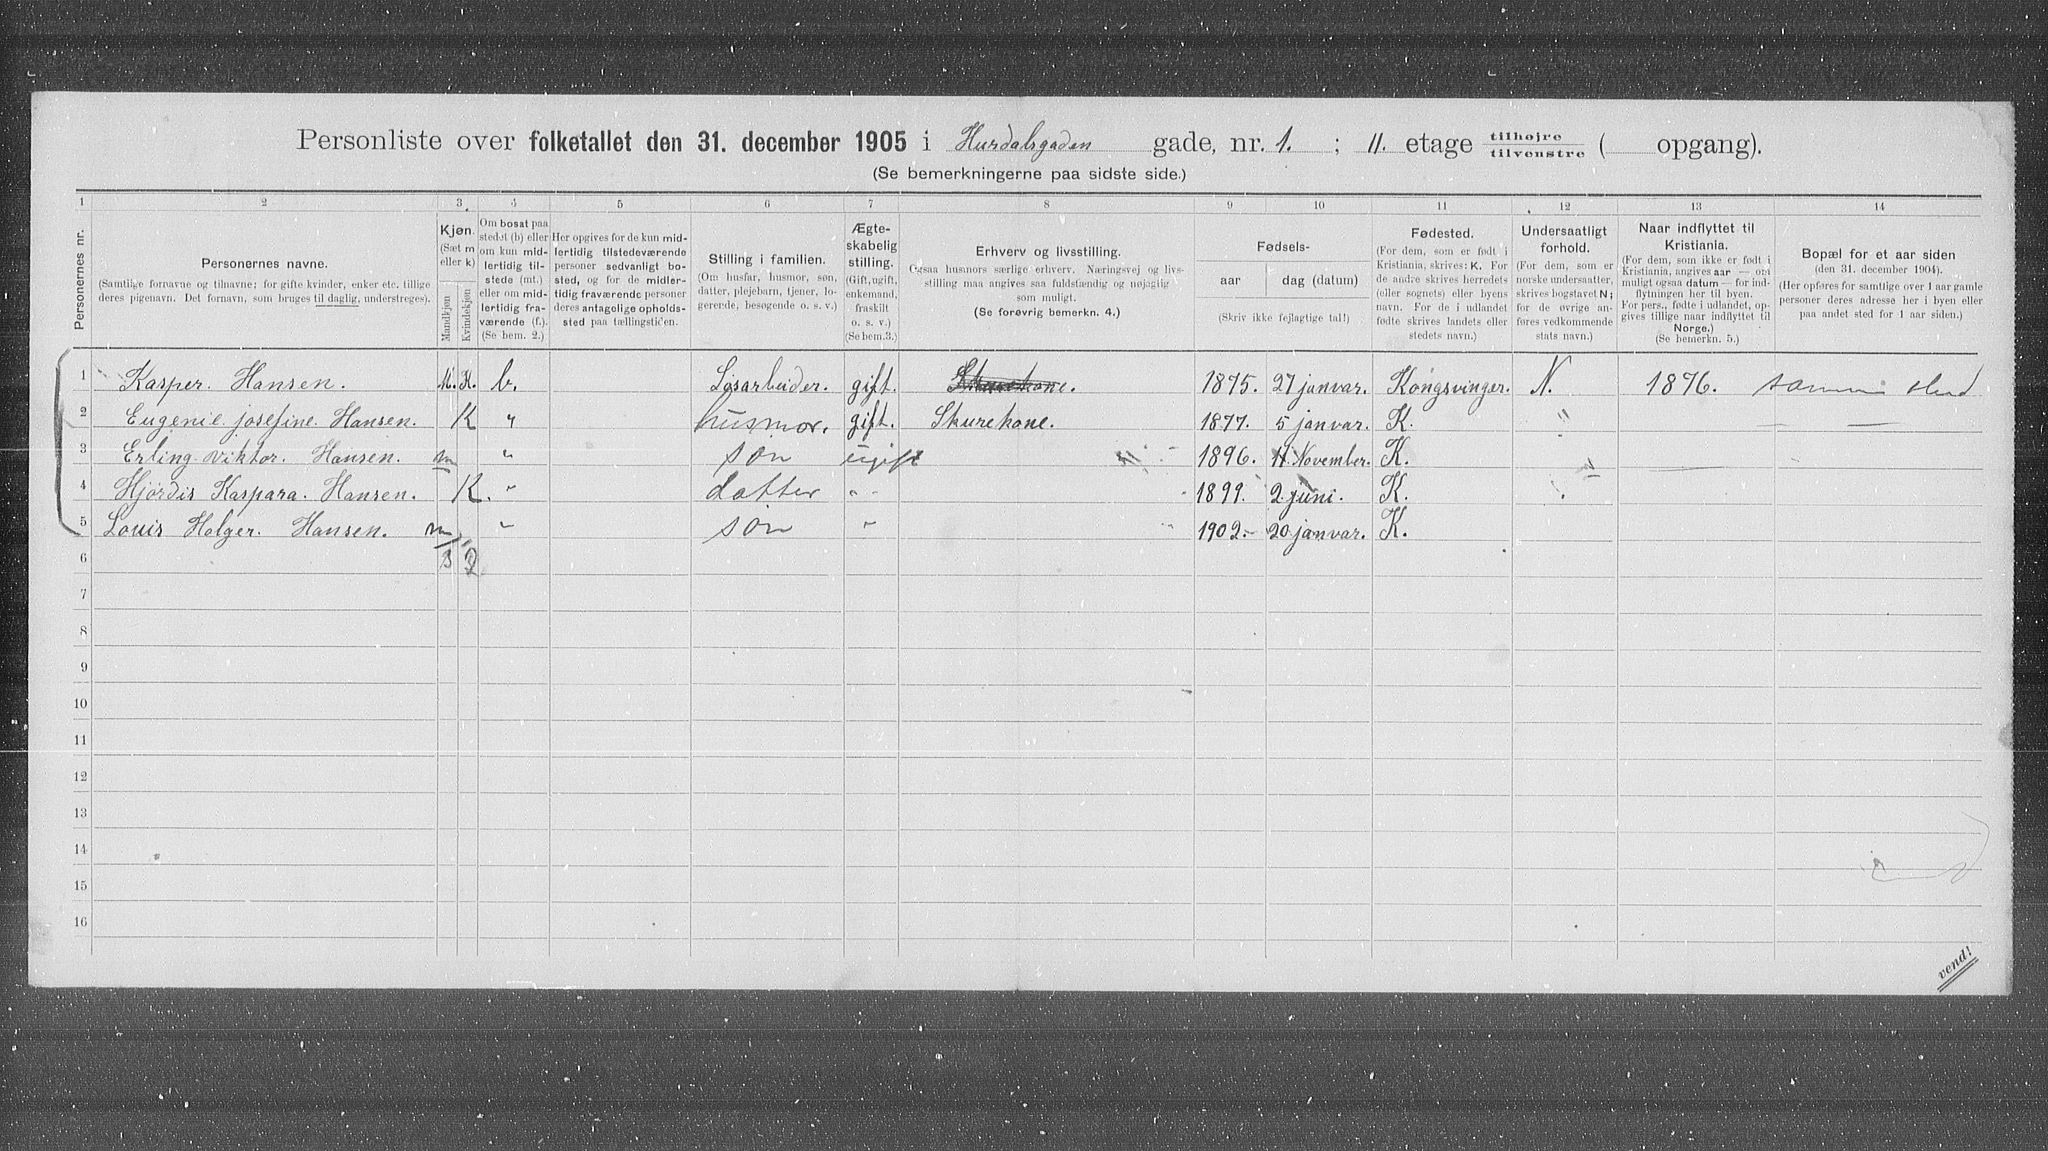 Personliste over folketallet den 31. december 1905 i Hurdalsgaden gade, nr. 1. ; II. etage tilhøjre tilvenstre ( opgang).
(Se bemerkningerne paa sidste side.)
1 2 3. 4 5 6 7 8 9 10 11 12 13 14
Personernes nr.
Personernes navne.
(Samtlige fornavne og tilnavne; for gifte kvinder, enker etc. tillige
deres pigenavn. Det fornavn, som bruges til daglig, understreges).
Kjøn.
(Sæt m
eller k)
Mandkjøn
Kvindekjøn
Om bosat paa
stedet (b) eller
om kun mid-
lertidig til-
stede (mt.)
eller om mid-
lertidig fra-
værende (f.).
(Se bem. 2.)
Her opgives for de kun mid-
lertidig tilstedeværende
personer sedvanligt bo-
sted, og for de midler-
tidig fraværende personer
deres antagelige opholds-
sted paa tællingstiden.
Stilling i familien.
(Om husfar, husmor, søn,
datter, plejebarn, tjener, lo-
gerende, besøgende o. s. v.)
Ægte-
skabelig
stilling.
(Gift, ugift,
enkemand,
fraskilt
o. s. v.)
(Se bem.3.)
Erhverv og livsstilling.
Ogsaa husmors særlige erhverv. Næringsvej og livs-
stilling maa angives saa fuldstændig og nøjagtig
som muligt.
(Se forøvrig bemerkn. 4.)
Fødsels-
aar dag (datum)
(Skriv ikke fejlagtige tal!)
Fødested.
(For dem, som er født i
Kristiania, skrives: K. For
de andre skrives herredets
(eller sognets) eller byens
navn. For de i udlandet
fødte skrives landets eller
stedets navn.)
Undersaatligt
forhold.
(For dem, som er
norske undersaatter,
skrives bogstavet N;
for de øvrige an-
føres vedkommende
stats navn.)
Naar indflyttet til
Kristiania.
(For dem, som ikke er født i
Kristiania, angives aar — om
muligt ogsaa datum — for ind-
flytningen her til byen.
For pers., fødte i udlandet, op-
gives tillige naar indflyttet til
Norge.)
(Se bemerkn. 5.)
Bopæl for et aar siden
(den 31. december 1904).
(Her opføres for samtlige over 1 aar gamle
personer deres adresse her i byen eller
paa andet sted for 1 aar siden.)
1 Kasper. Hansen. M. K. b. Løsarbeider. gift. Skurekone. 1875. 27 januar. Kongsvinger. N. 1876. samme sted
2 Eugenie. josefine. Hansen. K " husmor. gift. Skurekone. 1877. 5 januar. K. " — —
3 Erling. Viktor. Hansen. m " søn ugift 1896. 11 November. K. "
4 Hjørdis Kaspara. Hansen. K. " datter " 1899. 2 juni. K.
5 Louis Holger. Hansen. m " søn " 1902. 20 januar. K.
6 3 2
7
8
9
10
11
12
13
14
15
16
vend!